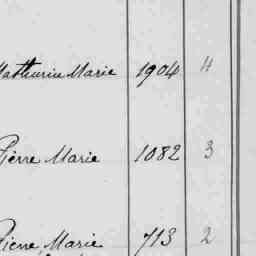 Mathurin Marie 1904 4
Pierre Marie 1082 3
Pierre Marie 713 2